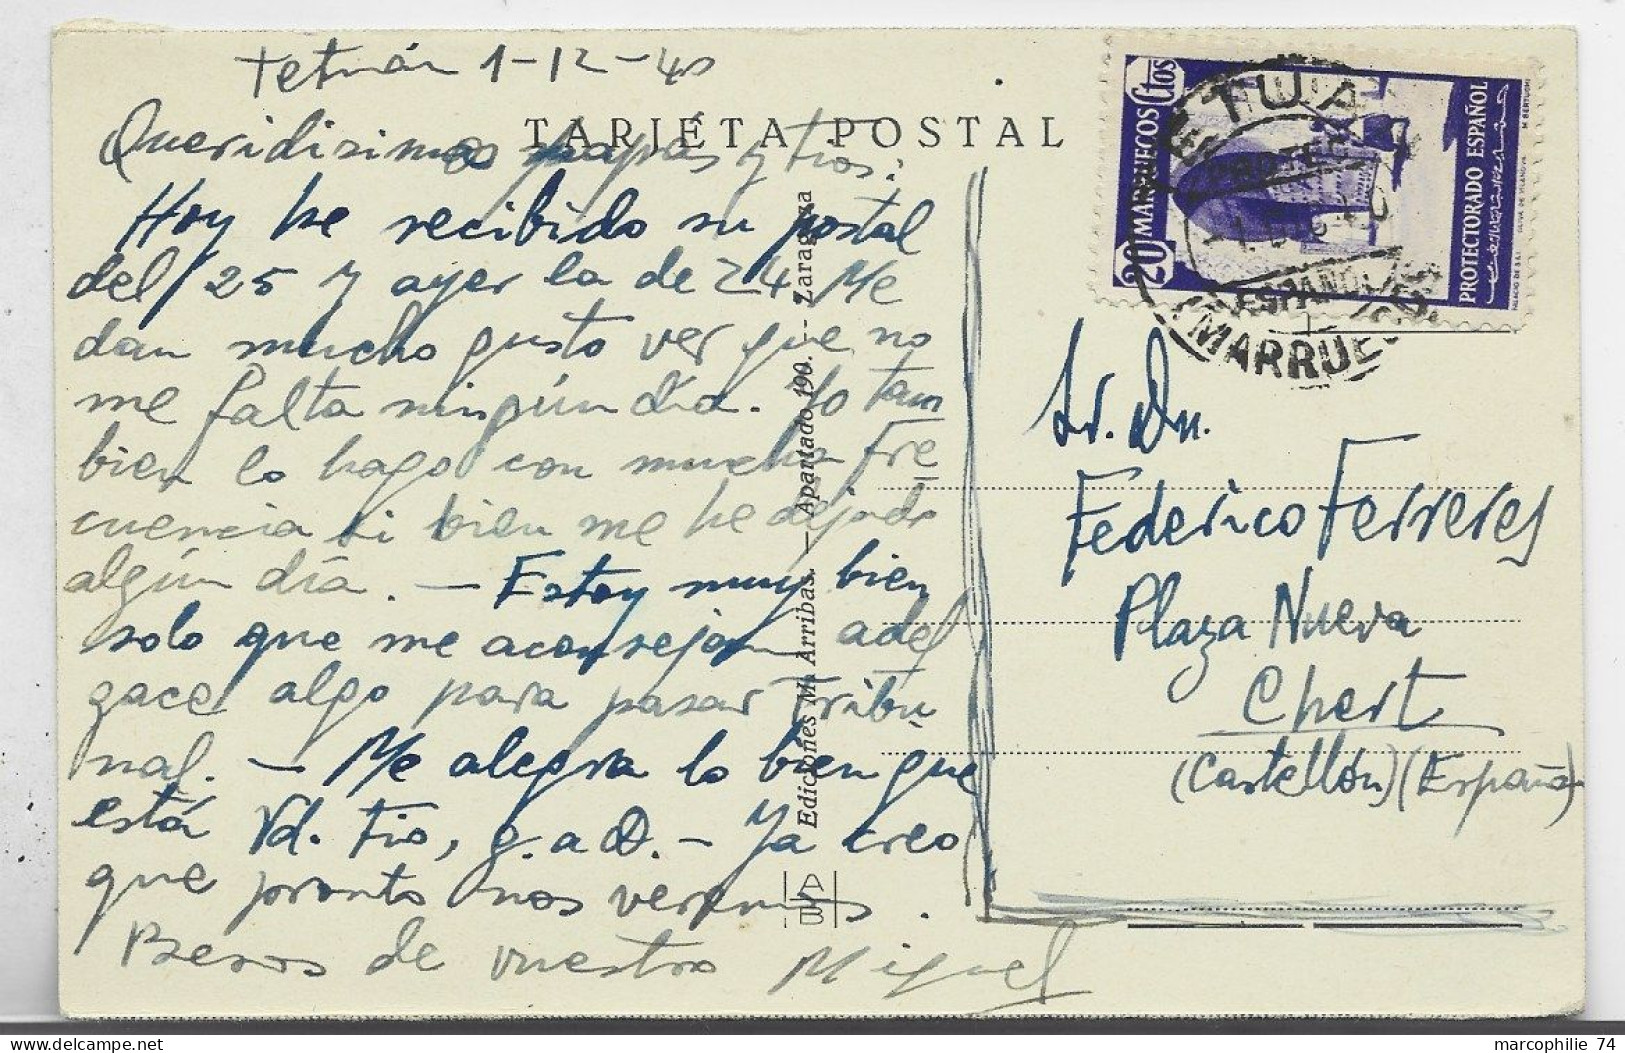 Tetuán 1-12-40
TARJETA POSTAL
Queridisimos papás y tios:
Hoy he recibido su postal
del 25 y ayer la de 24 Me
dan mucho gusto ver que no
me falta ningún día. Yo tam
bien lo hago con mucha fre
cuencia si bien me he dejado
algún día. — Estoy muy bien
solo que me aconsejan adel
gace algo para pasar Tribu
nal. — Me alegra lo bien que
está Vd. tio, g. a D. — Ya creo
que pronto nos veremos.
Besos de vuestro Miguel
Ediciones M. Arribas. — Apartado 190. — Zaragoza
A
B
20 MARRUECOS Ctos
PROTECTORADO ESPAÑOL
ESPAÑOL
MARRUECOS
Sr. Dn.
Federico Ferreres
Plaza Nueva
Chert
(Castellón) (España)
marcophilie 74